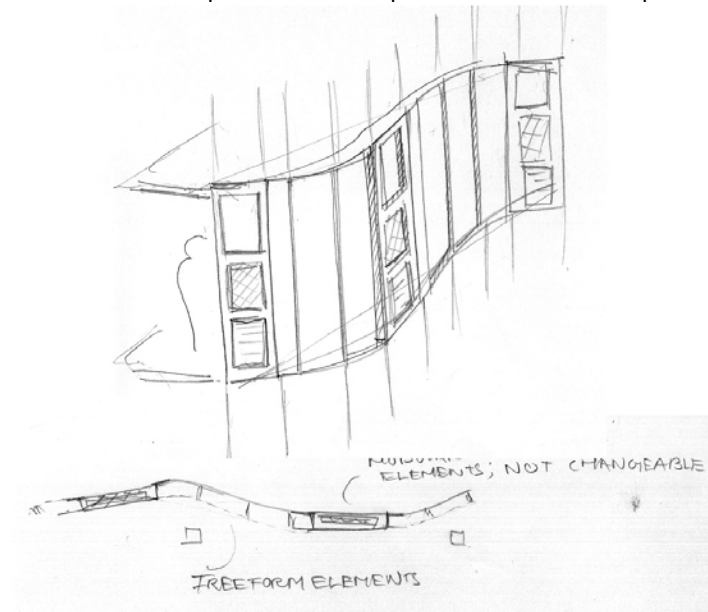 ELEMENTS; NOT CHANGEABLE
FREEFORM ELEMENTS